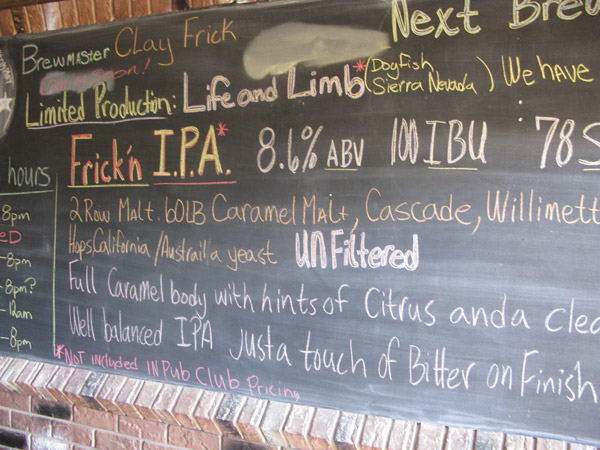 Next Brew
Brewmaster Clay Frick
Limited Production: Life and Limb* (Dogfish Sierra Nevada) We have
Frick'n I.P.A.* 8.6% ABV 100 IBU 78 S
2 Row Malt. 60LB Caramel Malt, Cascade, Willimett
Hops California / Austrailia yeast UNFiltered
Full Caramel body with hints of Citrus and a clea
Well balanced IPA just a touch of Bitter on Finish
*Not included in Pub Club Pricing
hours
8pm
ED
-8pm
-8pm?
-12am
-8pm